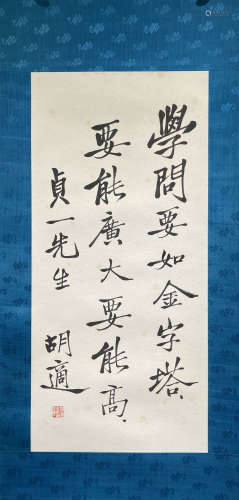 學問要如金字塔、
要能廣大要能高．
貞一先生
胡適